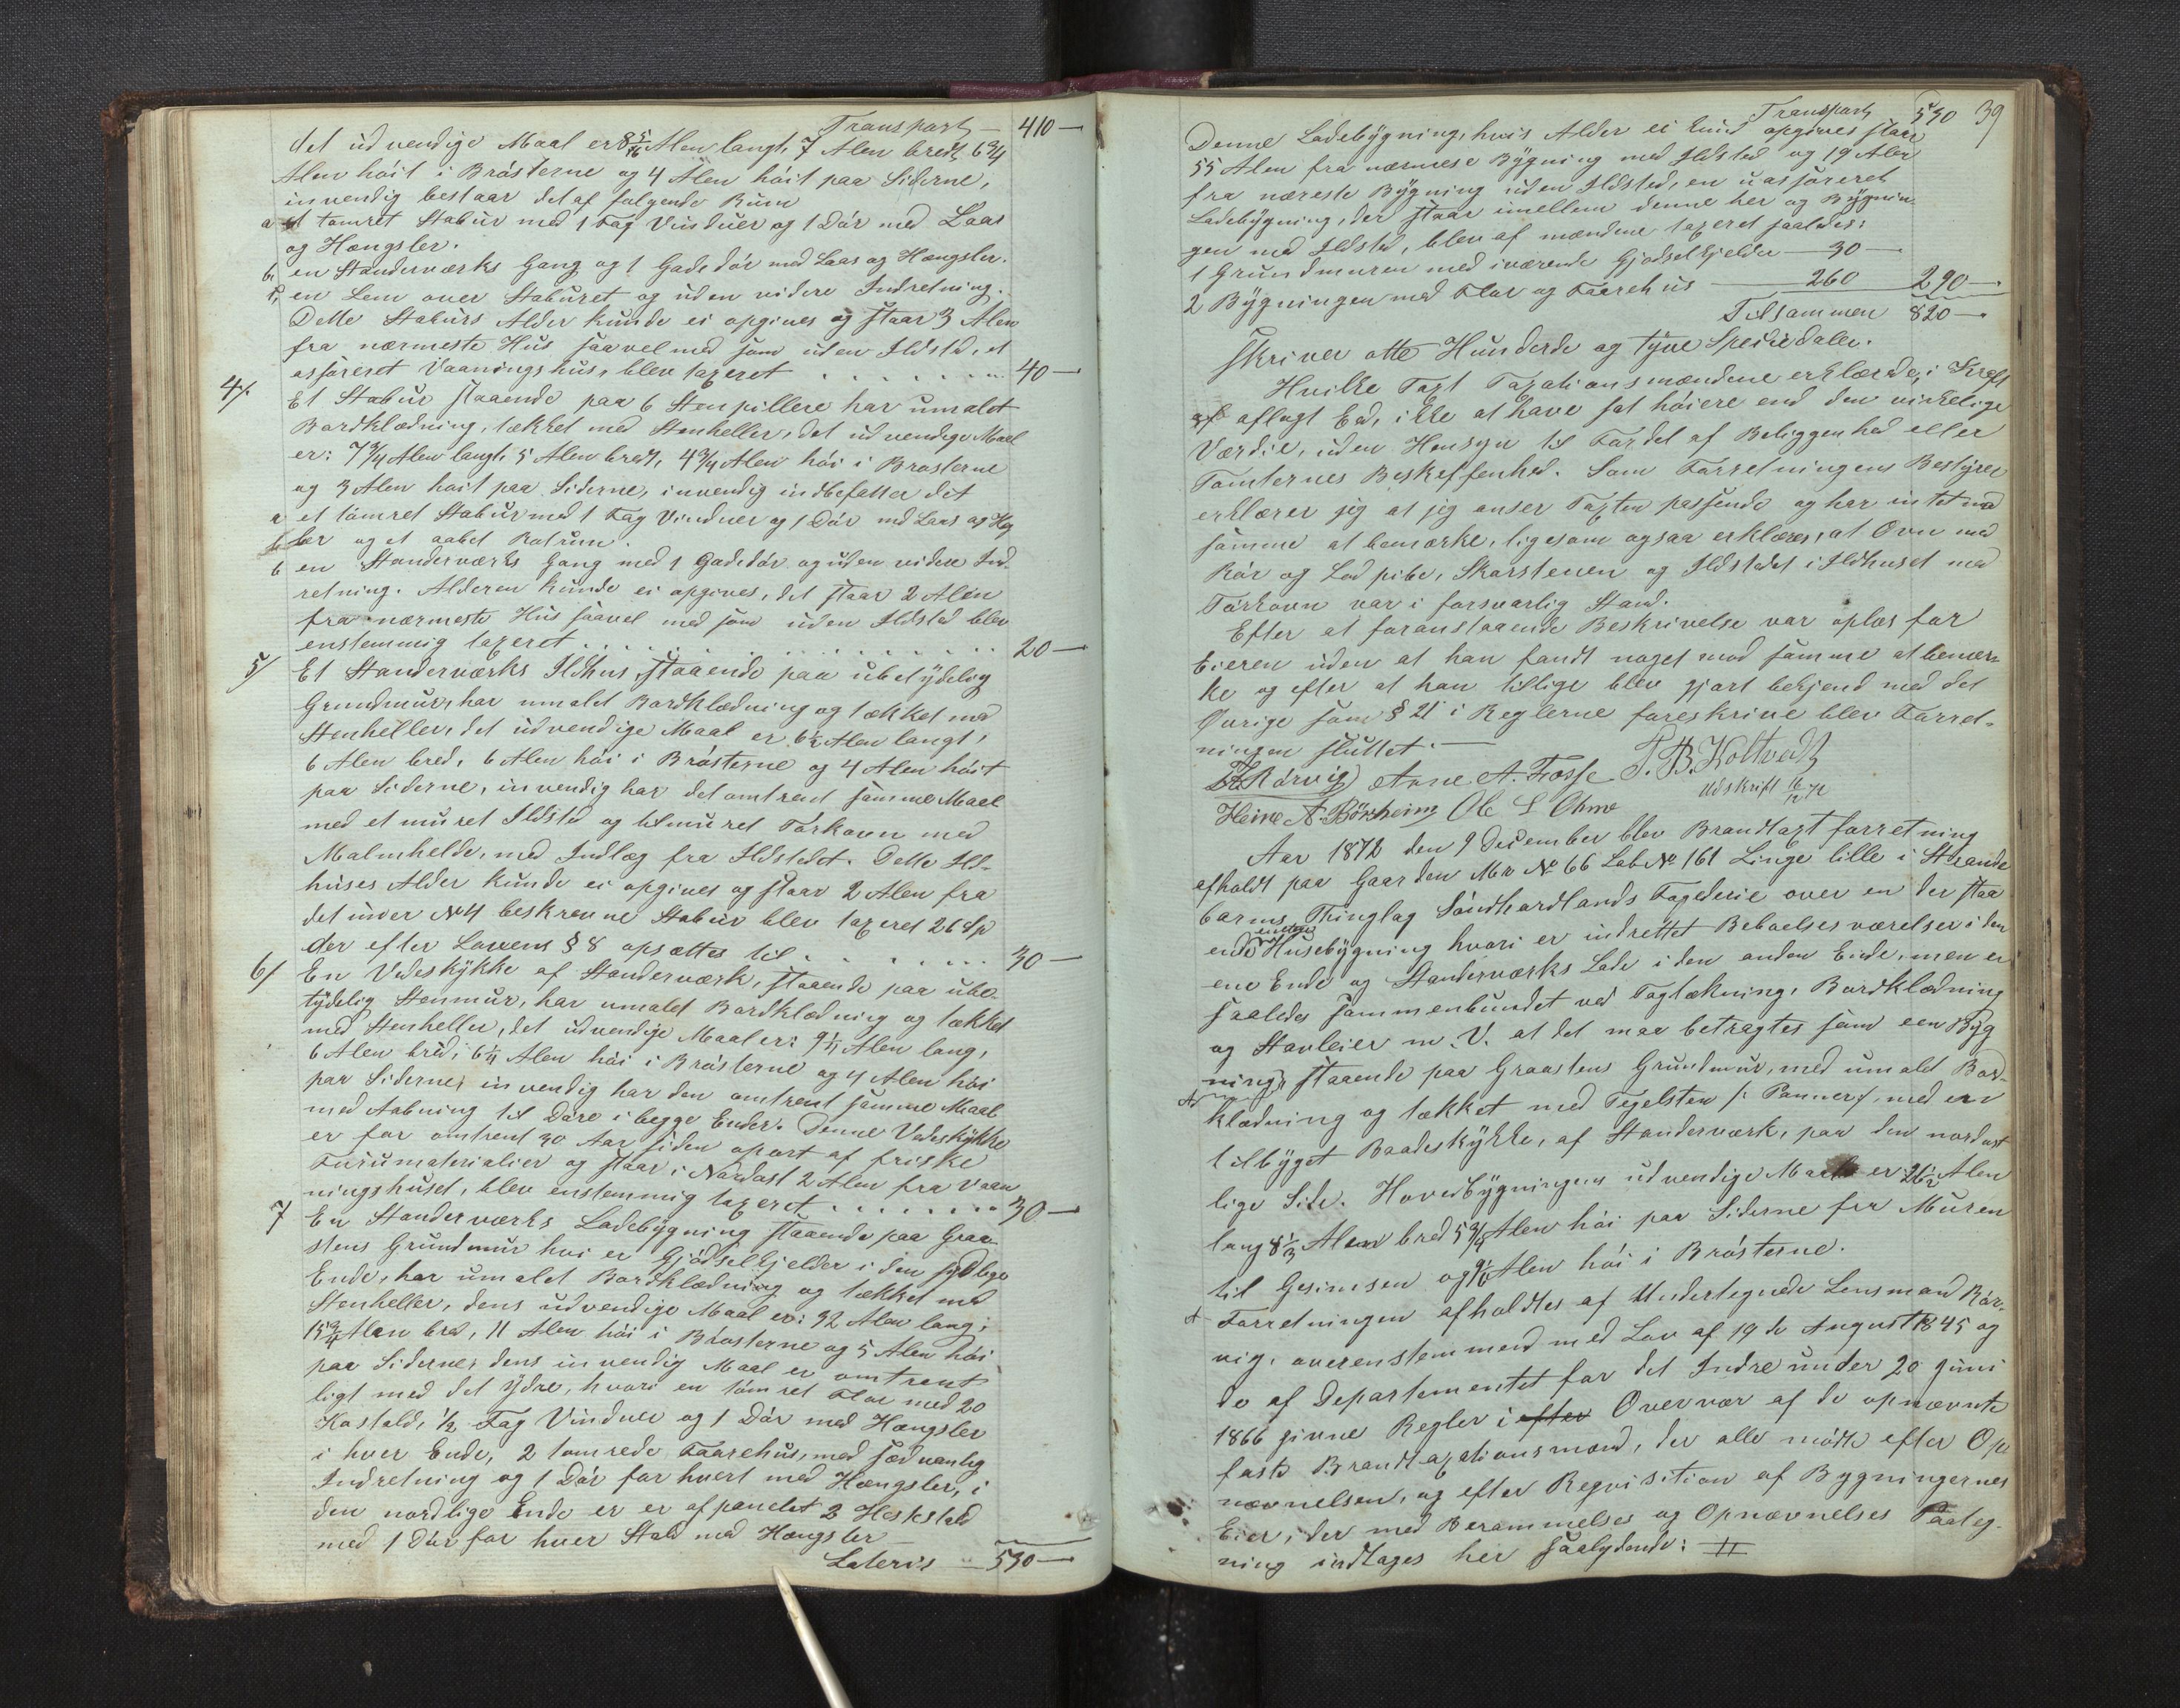 Transport — 410 —
det udvendige Maal er 8 5/16 Alen langt, 7 Alen bredt, 6 3/4
Alen höit i Brösterne og 4 Alen höit paa Siderne,
invendig bestaar det af følgende Rum
a et tömret Stabur med 1 Fag Vinduer og 1 Dör med Laas
og Hængsler.
b, en Standerværks Gang og 1 Gadedör med Laas og Hængsler.
c, en Lem over Staburet og uden videre Indretning.
Dette Staburs Alder kunde ei opgives og staar 3 Alen
fra nærmeste Hus saavel med som uden Ildsted, et
assureret Vaaningshus, blev taxeret . . . . . . . 40 —
4/. Et Stabur staaende paa 6 Stenpillere har umalet
Bordklædning, tækket med Stenheller, det udvendige Maal
er: 7 3/4 Alen langt, 5 Alen bredt, 4 3/4 Alen höi i Brösterne
og 3 Alen höit paa Siderne, invendig indbefatter det
a et tömret Stabur med 1 Fag Vinduer og 1 Dör md Laas og Hæg
ler og et aabet Rotrum.
b en Standerværks Gang med 1 Gadedör og uden videre Ind-
retning. Alderen kunde ei opgives, det staar 2 Alen
fra nærmeste Hus saavel med som uden Ildsted blev
enstemmig taxeret . . . . . . . . . . . . 20 —
5/ Et Standerværks Ildhus, staaende paa ubetydelig
Grundmur, har umalet Bordklædning og tækket med
Stenheller, det udvendige Maal er 6 1/2 Alen langt,
6 Alen bred, 6 Alen höi i Brösterne og 4 Alen höit
paa Siderne, invendig har det omtrent samme Maal
med et muret Ildsted og tilmuret Törkovn med
Malmhelde, med Indlæg fra Ildstedet. Dette Ild-
huses Alder kunde ei opgives og staar 2 Alen fra
det under No 4 beskrevne Stabur blev taxeret 26 Sp
der efter Lovens § 8 opsættes til . . . . . . . 30 —
6/ En Vedeskykke af Standerværk, staaende paa ube-
tydelig Stenmur, har umalet Bordklædning og tækket
med Stenheller, det udvendige Maal er: 9 1/4 Alen lang,
6 Alen bred, 6 1/4 Alen höi i Brösterne og 4 Alen höi
paa Siderne, invendig har den omtrent samme Maal
med Aabning til Döre i begge Ender. Denne Vedeskykke
er for omtrent 30 Aar siden opört af friske
Furumaterialier og staar i Nordost 2 Alen fra Vaan
ningshuset, blev enstemmig taxeret . . . . . . . 30 —
7 En Standerværks Ladebygning staaende paa Graa-
stens Grundmur hvi er Gjödselkjelder i den sydlige
Ende, har umalet Bordklædning og tækket med
Stenheller, dens udvendige Maal er: 32 Alen lang,
15 3/4 Alen bred, 11 Alen höi i Brösterne og 5 Alen höi
paa Siderne, dens invendig Maal er omtrent
ligt med det ydre, hvori en tömret Flor med 20
Kostald, 1/2 Fag Vinduer og 1 Dör med Hængsler
i hver Ende, 2 tömrede Faarehus, med sædvanlig
Indretning og 1 Dör for hvert med Hængsler, i
den nordlige Ende er er afpanelet 2 Hestestald
med 1 Dör for hver Stald med Hængsler
Lateris — 530 —
Transport 530 39
Denne Ladebygning, hvis Alder ei kund opgives staar
55 Alen fra nærmese Bygning med Ildsted og 19 Alen
fra næreste Bygning uden Ildsted, en uassureret
Ladebygning, der staar imellem denne her og Bygnin-
gen med Ildsted, blev af mændene taxeret saaledes:
1 Grundmuren med iværende Gjödselkjelder — 30 —
2 Bygningen med Flor og Faarehus — 260 290 —
Tilsammen 820 —
skriver otte Hundrede og tyve Speciedaler.
Hvilke Taxt Taxationsmændene erklærede, i Kraft
af aflagt Ed, ikke at have sat höiere end den virkelige
Værdie, uden Hensyn til Fordel af Beliggenhed eller
Tomternes Beskaffenhed. Som Forretningens Bestyrer
erklærer jeg at jeg anser Taxten passende og har intet med
samme at bemærke, ligesom ogsaa erklæres, at Ovn med
Rör og Lodpibe, Skorstenen og Ildstedet i Ildhuset med
Törkovn var i forsvarlig Stand.
Efter at foranstaaende Beskrivelse var oplæst for
Eieren uden at han fandt noget mod samme at bemær-
ke og efter at han tillige blev gjort bekjend med det
Övrige som § 21 i Reglerne foreskrive blev Forret-
ningen sluttet. —
Rörvig Arne A. Fosse P. B. Koltvedt
Heine A. Börsheim Ole L Ohme Udskrift 16/12 72
Aar 1872 den 9 December blev Brandtaxtforretning
afholdt paa Gaarden Mr No 66 Lab No 161 Linge lille i Strande
barms Thinglag Söndhordlands Fogderie over en der staa
ende Husebygning hvori er indrettet Beboelsesværelser i den
ene Ende og Standerværks Lade i den anden Ende, men er
saaledes sammenbundet ved Tagtækning, Bordklædning
og Stavleier m. V. at det maa betragtes som een Byg
ning, staaende paa Graastens Grundmur, med umalt Bord-
klædning og tækket med Tegelsten /: Panner :/, med en
tilbyget Baadeskykke, af Standerværk, paa den nordost
lige Side. Hovedbygningens udvendige Maal er 26 1/2 Alen
lang 8 1/3 Alen bred 5 3/4 Alen höi paa Siderne fra Muren
til Gesimsen og 9 1/6 Alen höi i Brösterne.
A Forretningen afholdtes af Undertegnede Lensmand Rör-
vig, overenstemmend med Lov af 19 de August 1845 og
de af Departementet for det Indre under 20 Juni
1866 givne Regler i efter Overvær af de opnævnte
faste Brandtaxationsmænd, der alle mödte efter Op
nævnelsen, og efter Reqvisition af Bygningernes
Eier, der med Berammelses og Opnævnelses Paateg-
ning indtages her saalydende: #